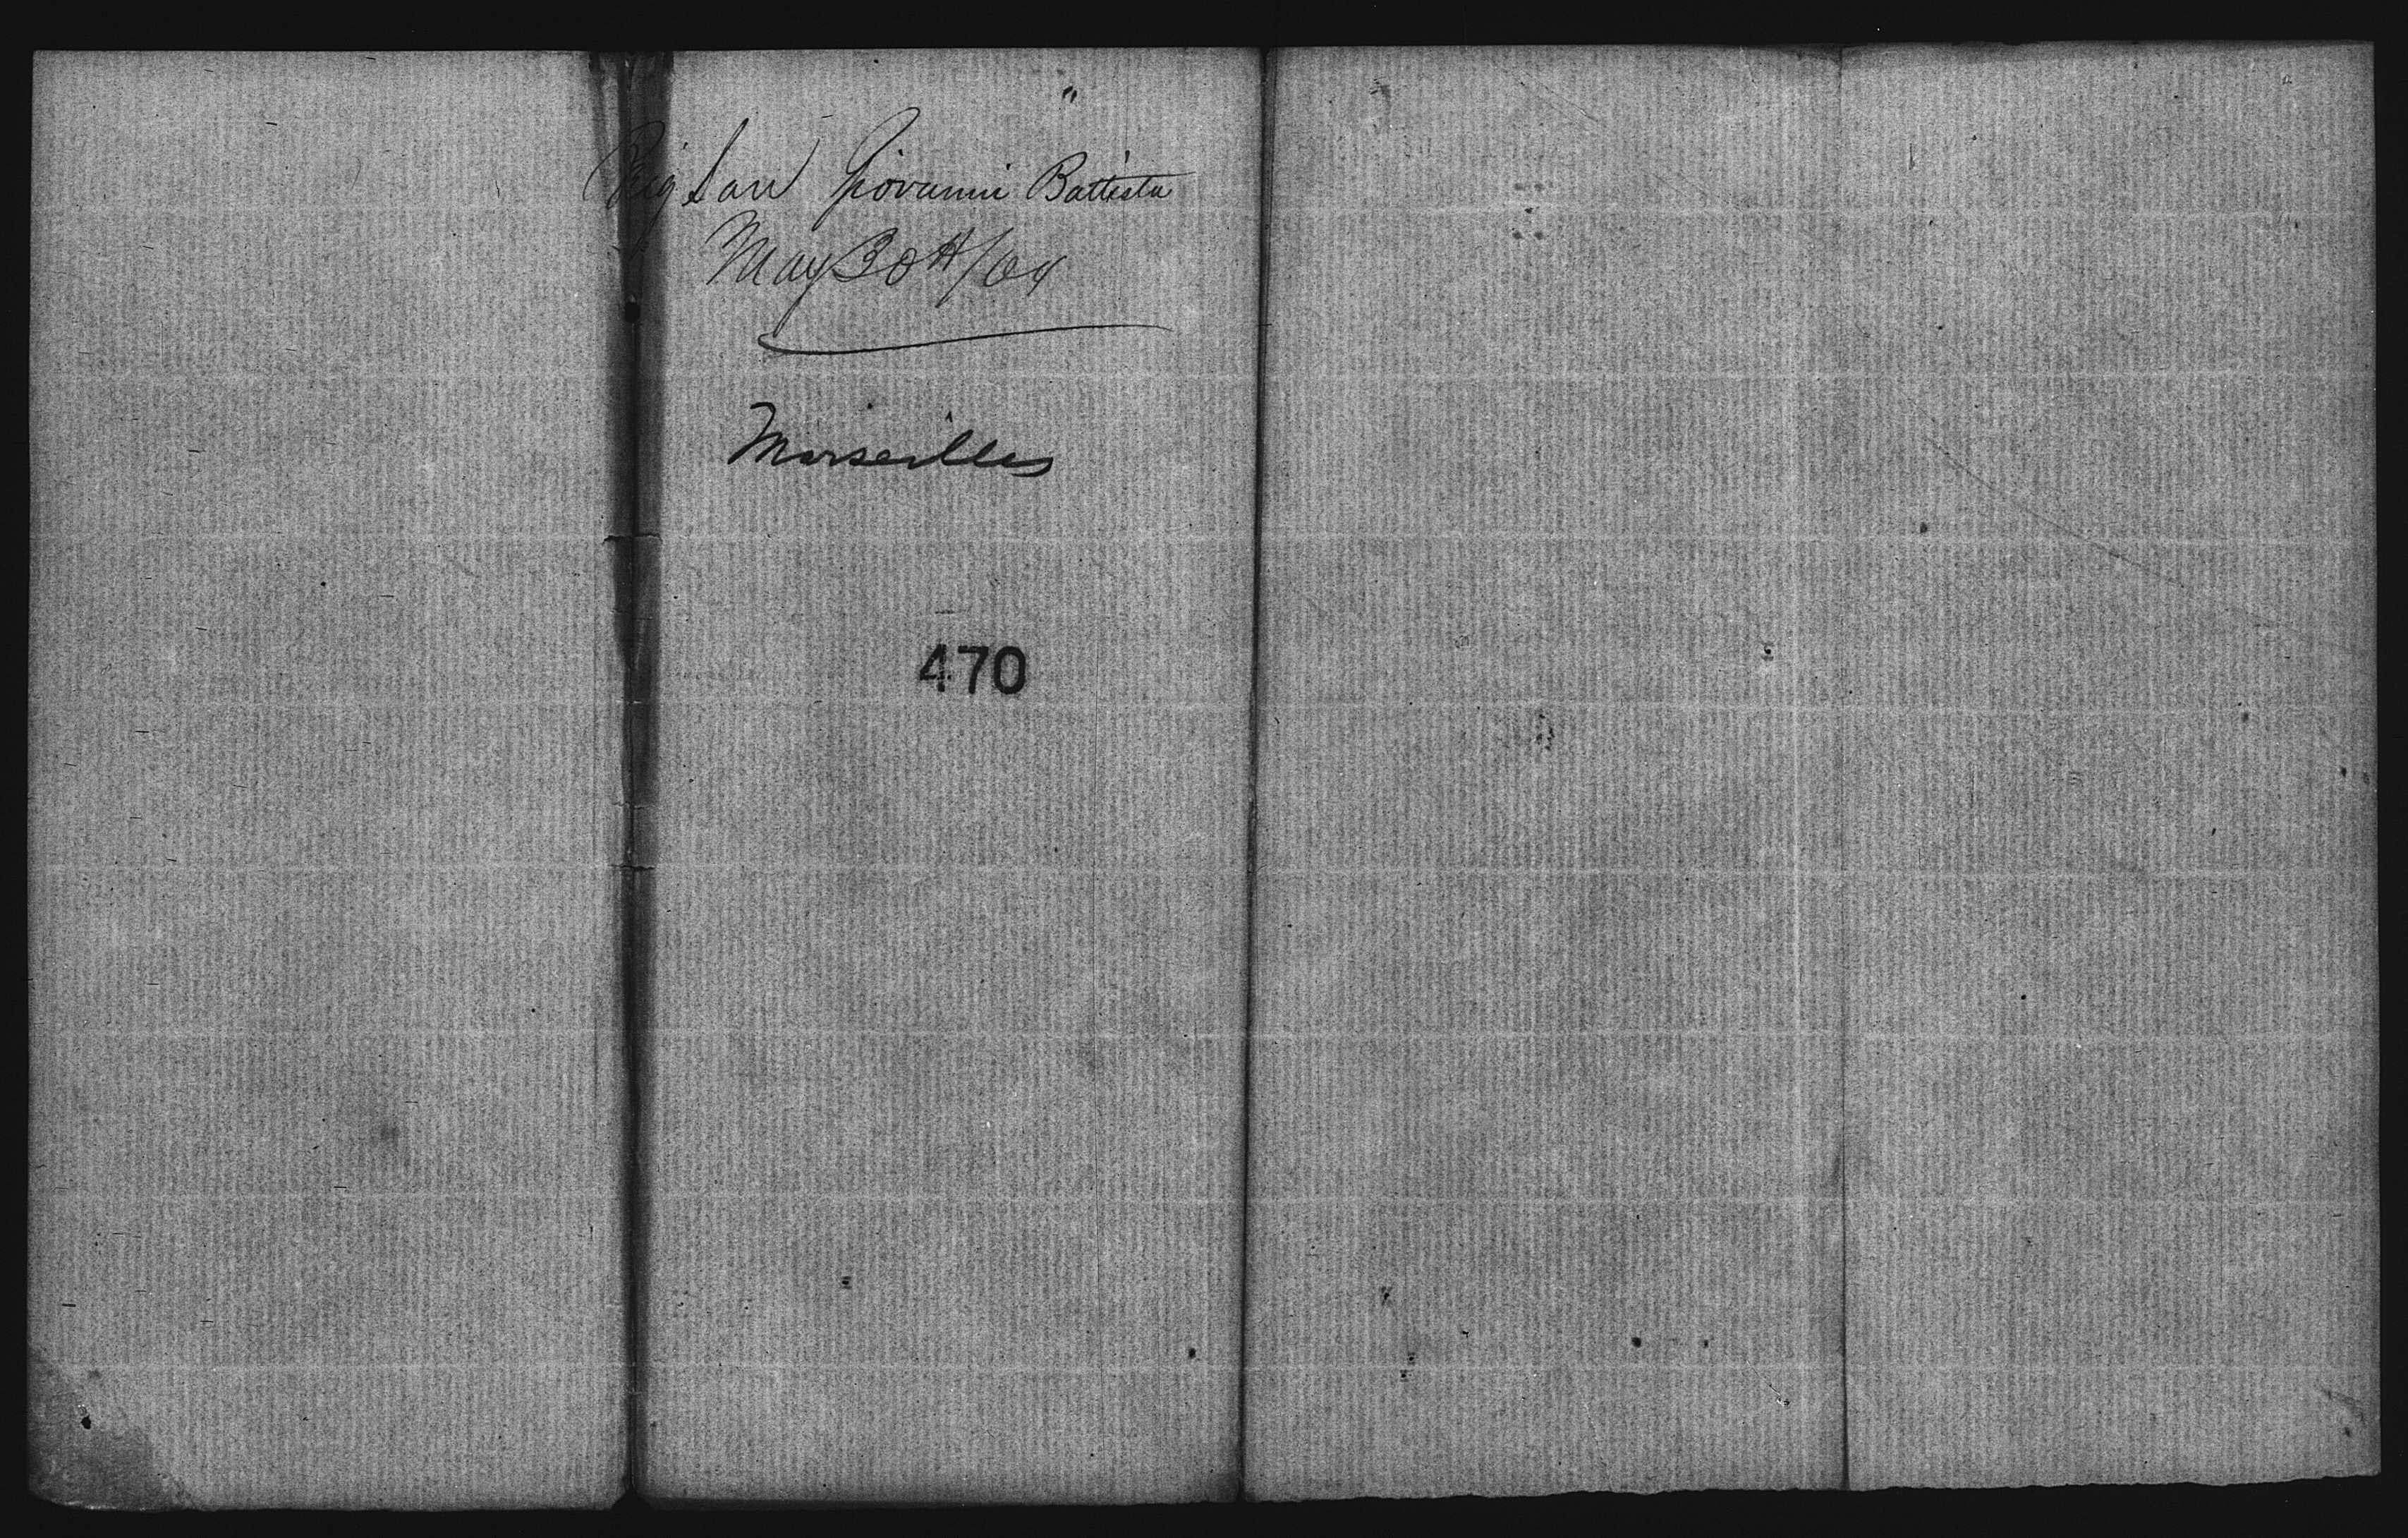 Brig San Giovanni Battista
May 30th/04
Marseilles
470